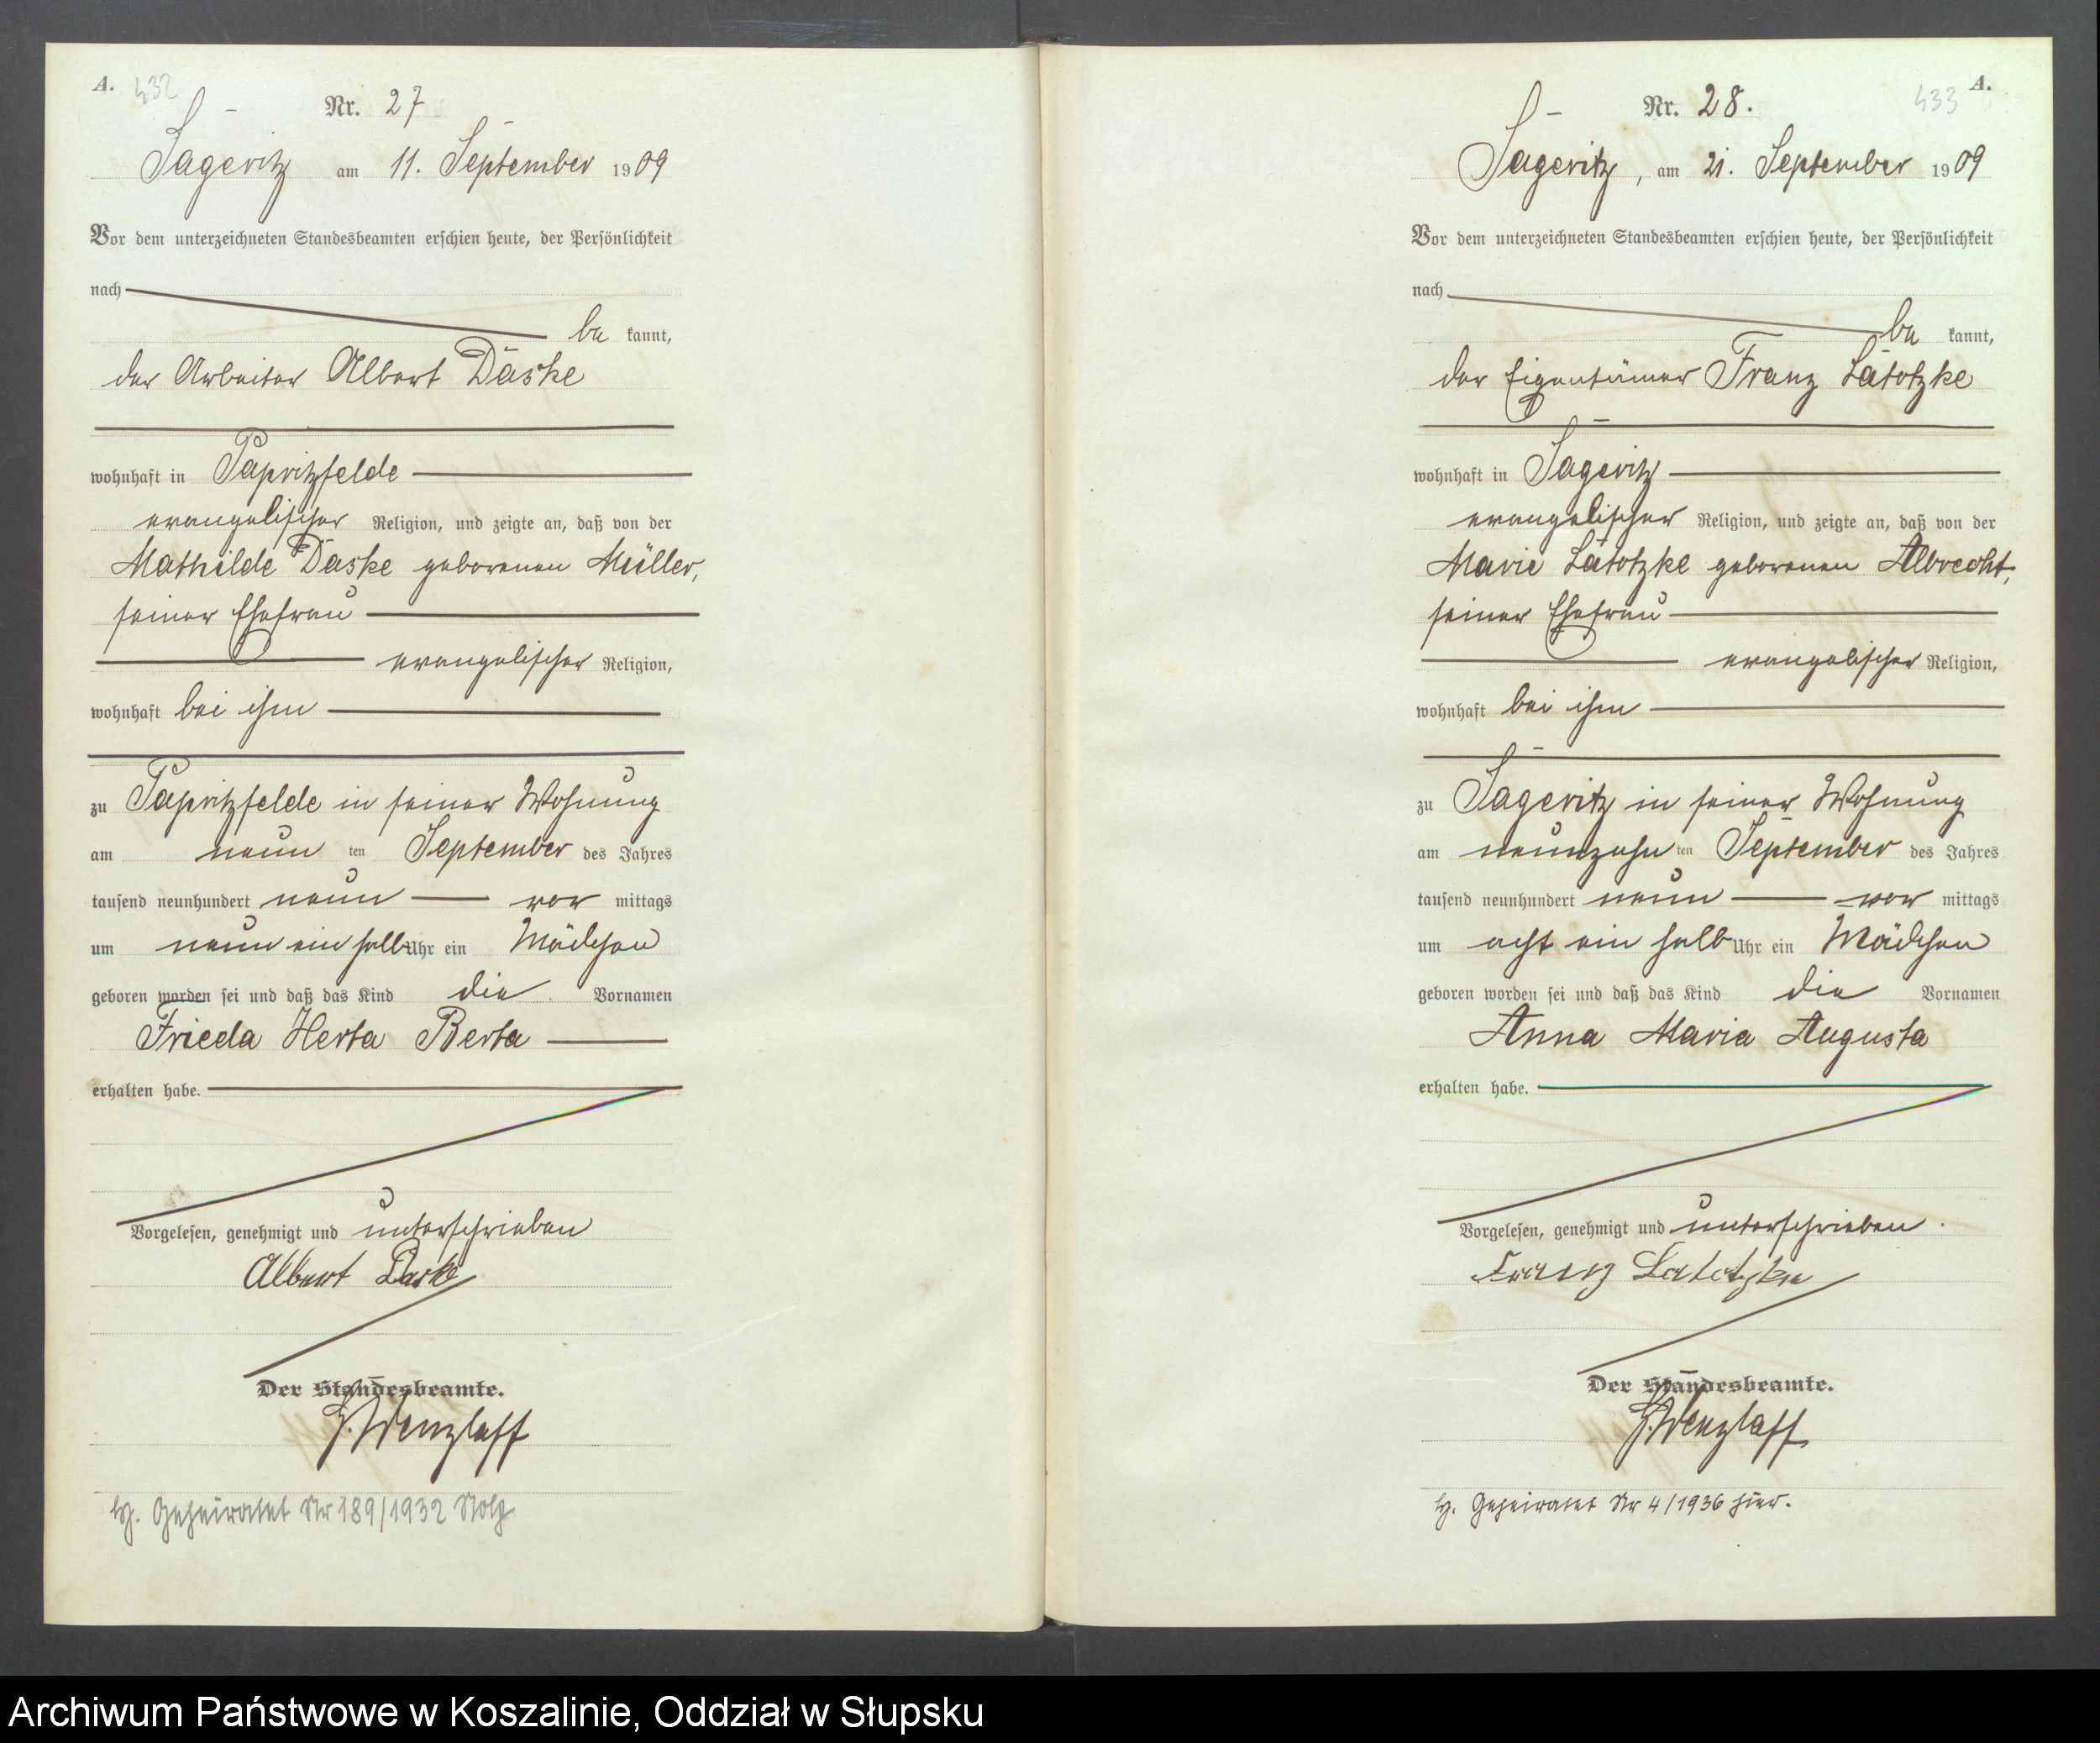 A. 432
Nr. 27
Sageritz am 11. September 1909
Vor dem unterzeichneten Standesbeamten erschien heute, der Persönlichkeit
nach
be kannt,
der Arbeiter Albert Daske
wohnhaft in Papritzfelde
evangelischer Religion, und zeigte an, daß von der
Mathilde Daske geborenen Müller,
seiner Ehefrau
evangelischer Religion,
wohnhaft bei ihm
zu Papritzfelde in seiner Wohnung
am neun ten September des Jahres
tausend neunhundert neun vor mittags
um neun ein halb Uhr ein Mädchen
geboren worden sei und daß das Kind die Vornamen
Frieda Herta Berta
erhalten habe.
Vorgelesen, genehmigt und unterschrieben
Albert Daske
Der Standesbeamte.
Wenzlaff
Geheiratet Nr 189/1932 Stolp
A.
433
Nr. 28.
Sageritz, am 21. September 1909
Vor dem unterzeichneten Standesbeamten erschien heute, der Persönlichkeit
nach
be kannt,
der Eigentümer Franz Latotzke
wohnhaft in Sageritz
evangelischer Religion, und zeigte an, daß von der
Marie Latotzke geborenen Albrecht,
seiner Ehefrau
evangelischer Religion,
wohnhaft bei ihm
zu Sageritz in seiner Wohnung
am neunzehn ten September des Jahres
tausend neunhundert neun vor mittags
um acht ein halb Uhr ein Mädchen
geboren worden sei und daß das Kind die Vornamen
Anna Maria Augusta
erhalten habe.
Vorgelesen, genehmigt und unterschrieben.
Franz Latotzke
Der Standesbeamte.
Wenzlaff
Geheiratet Nr 4/1936 hier.
Archiwum Państwowe w Koszalinie, Oddział w Słupsku